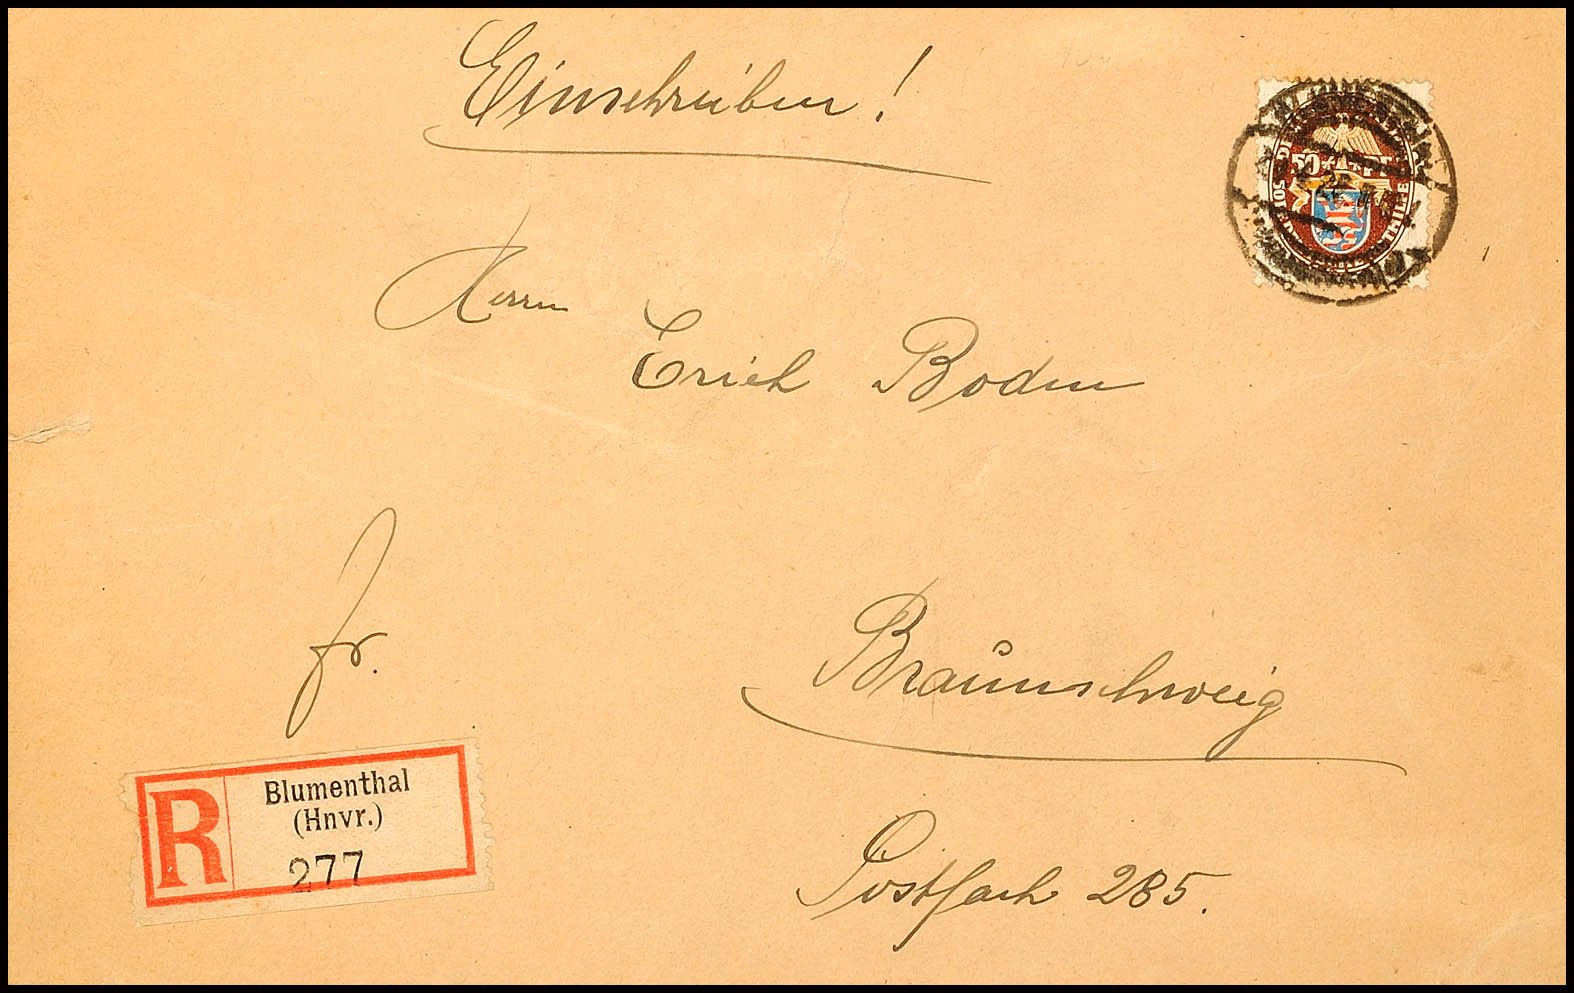 Einschreiben!
50 Pf
Herrn
Erich Boden
fr.
Braunschweig
R
Blumenthal
(Hnvr.)
277
Postfach 285.